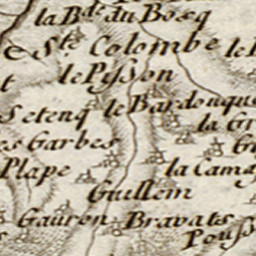 la B.de du Bosq
Ste Colombe le
le Pysson
Setenq le Bardonque
la Gr
es Garbes
Gr
Plape la Cama
Guillem
Gauren Bravats
Pouss